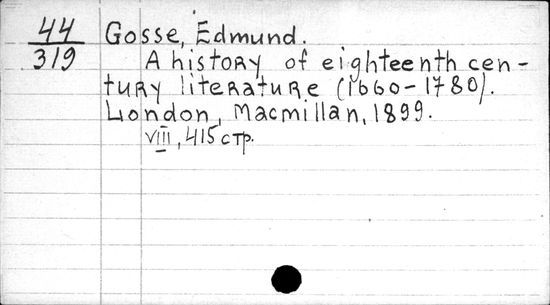 44
319
Gosse, Edmund.
A history of eighteenth cen-
tury literature (1660-1780).
London, Macmillan, 1899.
VIII, 415 стр.